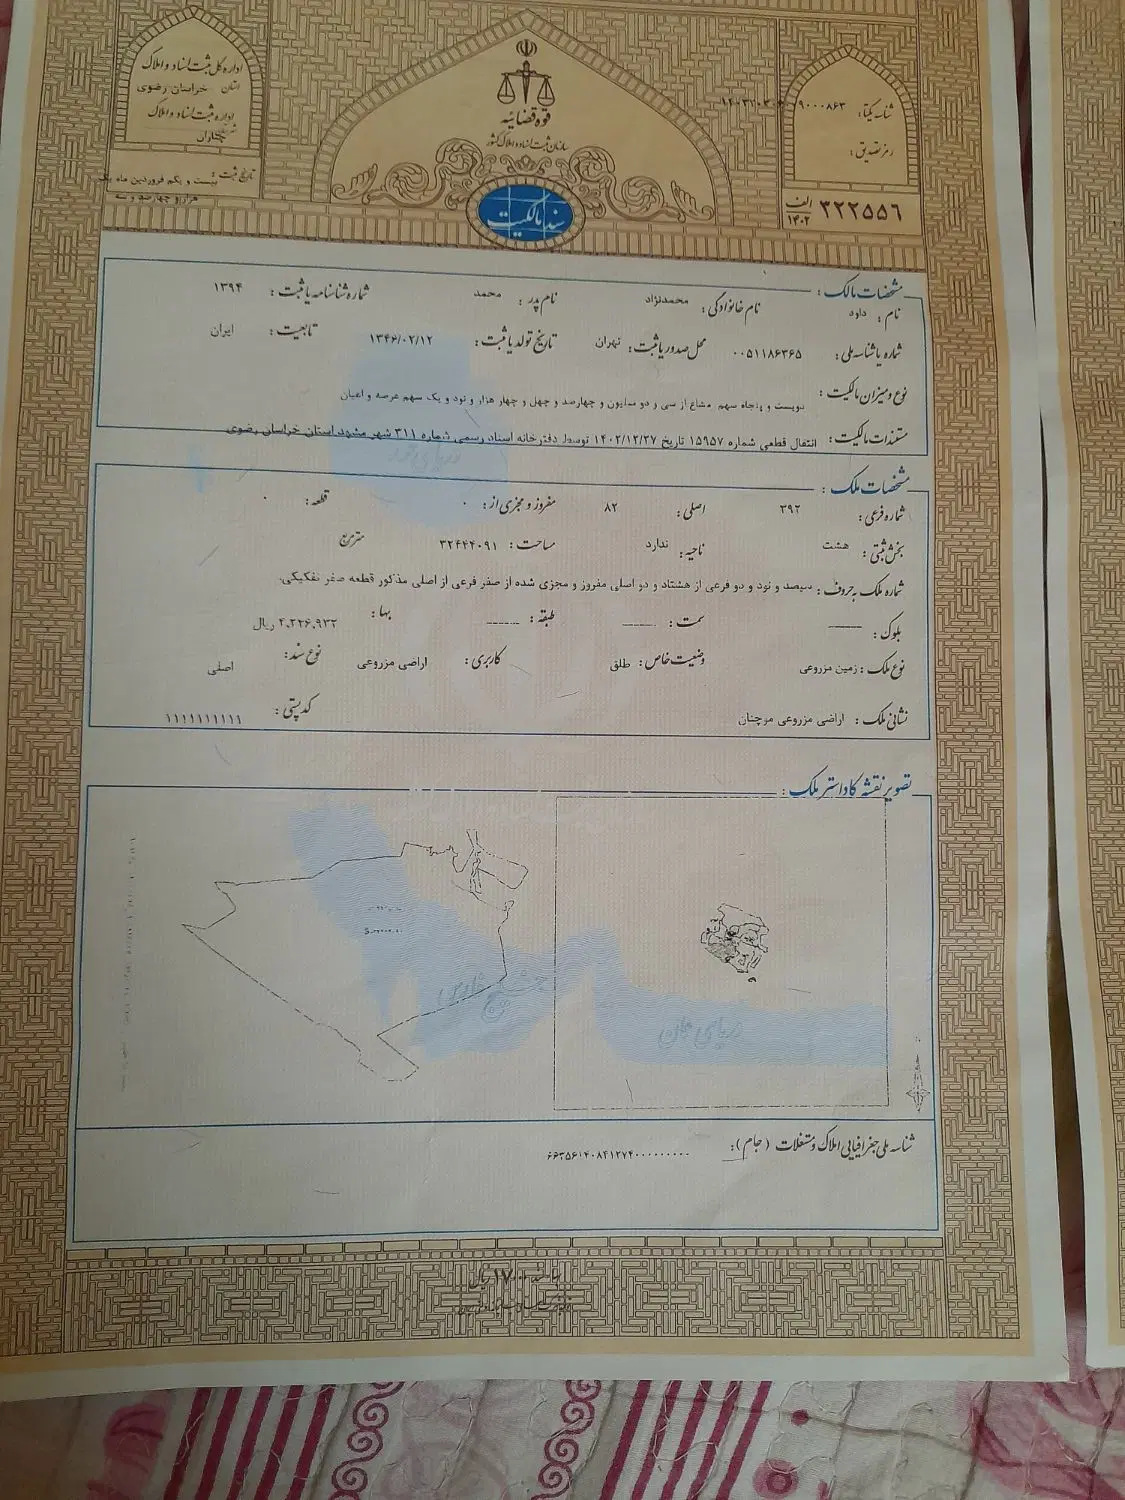 اداره کل ثبت اسناد و املاک
استان خراسان رضوی
اداره ثبت اسناد و املاک
چناران
تاریخ ثبت : بیست و یکم فروردین ماه یک
هزار و چهارصد و سه
قوه قضائیه
سازمان ثبت اسناد و املاک کشور
سند مالکیت
شناسه یکتا :
رمز تصدیق :
الف ۱۴۰۲ ۳۲۲۵۵۶
مشخصات مالک :
نام : داود نام خانوادگی : محمدنژاد نام پدر : محمد شماره شناسنامه یا ثبت : ۱۳۹۴
شماره یا شناسه ملی : ۰۰۵۱۱۸۶۳۶۵ محل صدور یا ثبت : تهران تاریخ تولد یا ثبت : ۱۳۴۶/۰۲/۱۲ تابعیت : ایران
نوع و میزان مالکیت : دویست و پنجاه سهم مشاع از سی و دو میلیون و چهارصد و چهل و چهار هزار و نود و یک سهم عرصه و اعیان
مستندات مالکیت : انتقال قطعی شماره ۱۵۹۵۷ تاریخ ۱۴۰۲/۱۲/۲۷ توسط دفترخانه اسناد رسمی شماره ۳۱۱ شهر مشهد استان خراسان رضوی
دریای خزر
مشخصات ملک :
شماره فرعی : ۳۹۲ اصلی : ۸۲ مفروز و مجزی از : ۰ قطعه : ۰
بخش ثبتی : هشت ناحیه : ندارد مساحت : ۳۲۴۴۴۰۹۱ مترمربع
شماره ملک به حروف : سیصد و نود و دو فرعی از هشتاد و دو اصلی مفروز و مجزی شده از صفر فرعی از اصلی مذکور قطعه صفر تفکیکی.
بلوک : ------ سمت : ------ طبقه : ------ بها : ۴,۲۲۶,۹۳۲ ریال
نوع ملک : زمین مزروعی وضعیت خاص : طلق کاربری : اراضی مزروعی نوع سند : اصلی
نشانی ملک : اراضی مزروعی مرچنان کد پستی : ۱۱۱۱۱۱۱۱۱۱
تصویر نقشه کاداستر ملک :
خلیج فارس
دریای عمان
شناسه ملی جغرافیایی املاک و مستغلات (جام) :